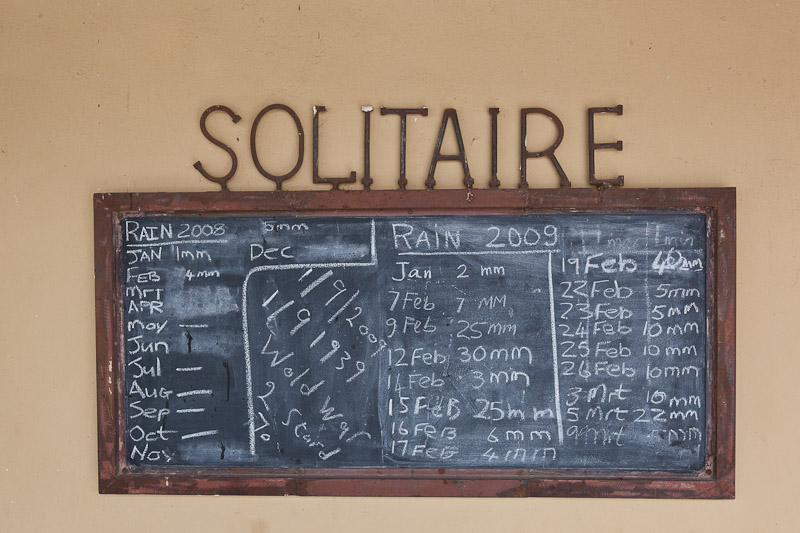 SOLITAIRE
RAIN 2008
JAN 1mm
FEB 4mm
mrt
APR
may —
Jun
Jul —
Aug —
Sep —
Oct —
Nov
5mm
Dec
1/9/2009
1/9/1939
Wold War
2 Staird
RAIN 2009
Jan 2 mm
7 Feb 7 MM
9 Feb 25mm
12 Feb 30mm
14 Feb 3mm
15 FeB 25mm
16 FeB 6mm
17 FeB 4mm
19 Feb
22 Feb 5mm
23 Feb 5mm
24 Feb 10mm
25 Feb 10mm
26 Feb 10mm
3 Mrt 10mm
5 Mrt 22mm
9 Mrt